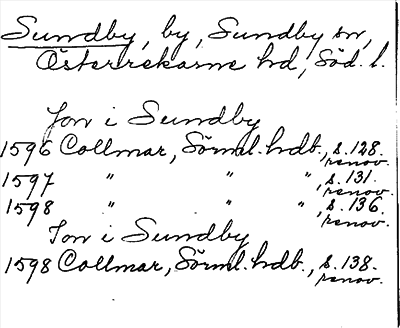 Sundby, by, Sundby sn,
Österrekarne hd, Söd. l.
Jon i Sundby
1596 Collmar, Sörml. hdb., s. 128.
renov.
1597 " " ", s. 131.
renov.
1598 " " ", s. 136.
renov.
Jon i Sundby
1598 Collmar, Sörml. hdb., s. 138.
renov.